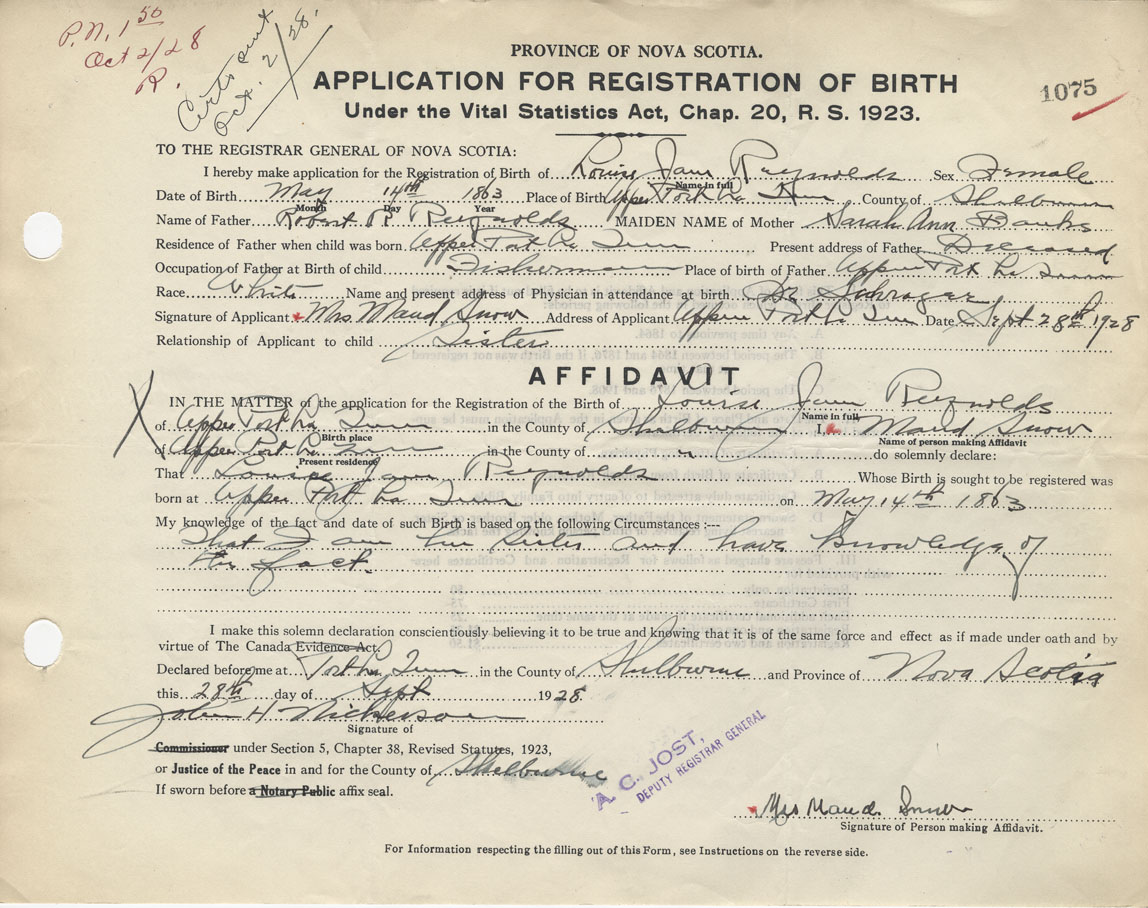 P.N. 1 50
Oct 2/28
R.
Certs sent
Oct. 2/28.
PROVINCE OF NOVA SCOTIA.
APPLICATION FOR REGISTRATION OF BIRTH
Under the Vital Statistics Act, Chap. 20, R. S. 1923.
1075
TO THE REGISTRAR GENERAL OF NOVA SCOTIA:
I hereby make application for the Registration of Birth of Louise Jane Reynolds Sex Female
Name in full
Date of Birth May 14th 1863 Place of Birth Upper Port La Tour County of Shelburne
Month Day Year
Name of Father Robert R Reynolds MAIDEN NAME of Mother Sarah Ann Banks
Residence of Father when child was born Upper Port La Tour Present address of Father Deceased
Occupation of Father at Birth of child Fisherman Place of birth of Father Upper Port La Tour
Race White Name and present address of Physician in attendance at birth Dr
Signature of Applicant Mrs Maud Snow Address of Applicant Upper Port La Tour Date Sept 28th 1928
Relationship of Applicant to child Sister
AFFIDAVIT
IN THE MATTER of the application for the Registration of the Birth of Louise Jane Reynolds
Name in full
of Upper Port La Tour in the County of Shelburne I, Maud Snow
Birth place Name of person making Affidavit
of Upper Port La Tour in the County of " do solemnly declare:
Present residence
That Louise Jane Reynolds Whose Birth is sought to be registered was
born at Upper Port La Tour on May 14th 1863
My knowledge of the fact and date of such Birth is based on the following Circumstances :---
That I am her sister and have knowledge of
the fact.
I make this solemn declaration conscientiously believing it to be true and knowing that it is of the same force and effect as if made under oath and by
virtue of The Canada Evidence Act.
Declared before me at Port La Tour in the County of Shelburne and Province of Nova Scotia
this 28th day of Sept 1928.
John H Nickerson
Signature of
Commissioner under Section 5, Chapter 38, Revised Statutes, 1923,
or Justice of the Peace in and for the County of Shelburne
If sworn before a Notary Public affix seal.
A. C. JOST,
DEPUTY REGISTRAR GENERAL
Mrs Maud Snow
Signature of Person making Affidavit.
For Information respecting the filling out of this Form, see Instructions on the reverse side.